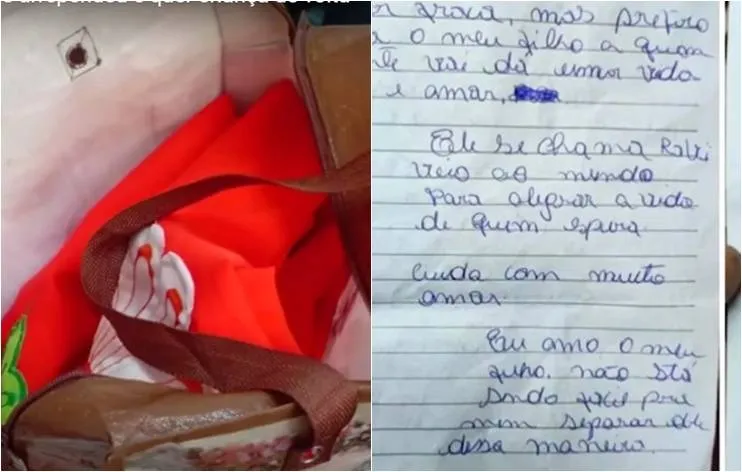 fraca, mas prefero
o meu filho a quem
vai dá uma vida
e amar,
Ele se chama Ravi
veio ao mundo
para alegrar a vida
de quem espera
Cuida com muito
amor.
Eu amo o meu
filho. não stá
sndo facil pra
mim separar dle
dessa maneira.